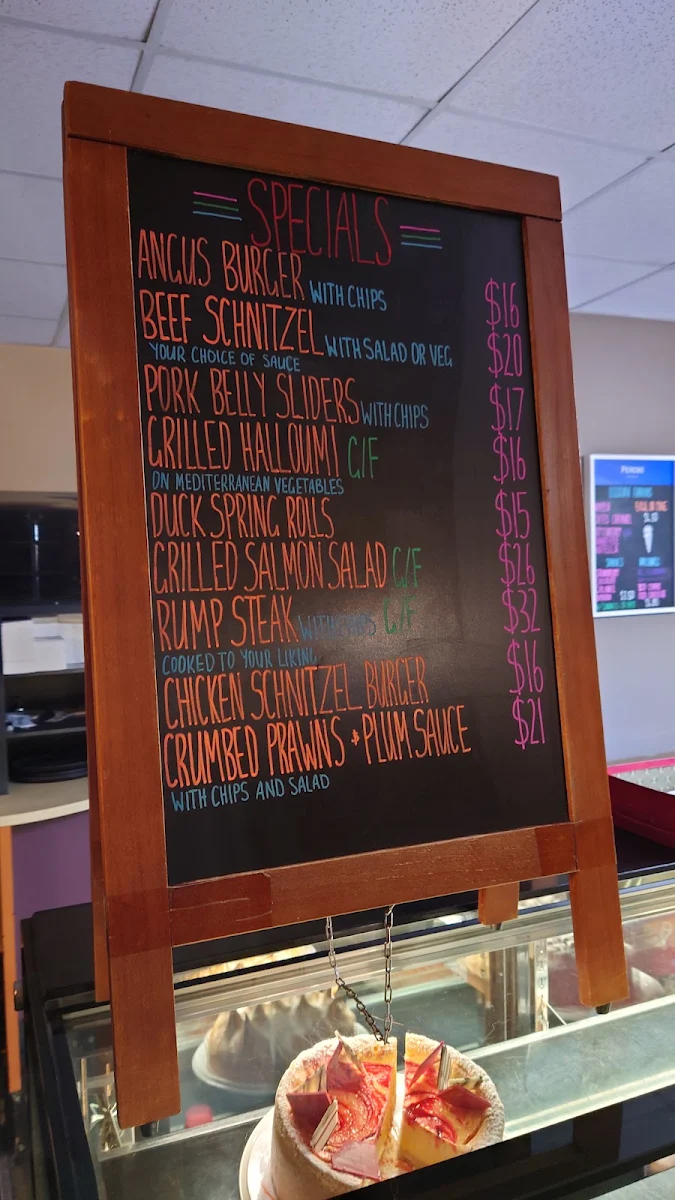 SPECIALS
ANGUS BURGER WITH CHIPS $16
BEEF SCHNITZEL WITH SALAD OR VEG $20
YOUR CHOICE OF SAUCE
PORK BELLY SLIDERS WITH CHIPS $17
GRILLED HALLOUMI G/F $16
ON MEDITERRANEAN VEGETABLES
DUCK SPRING ROLLS $15
GRILLED SALMON SALAD G/F $26
RUMP STEAK WITH CHIPS G/F $32
COOKED TO YOUR LIKING
CHICKEN SCHNITZEL BURGER $16
CRUMBED PRAWNS & PLUM SAUCE $21
WITH CHIPS AND SALAD